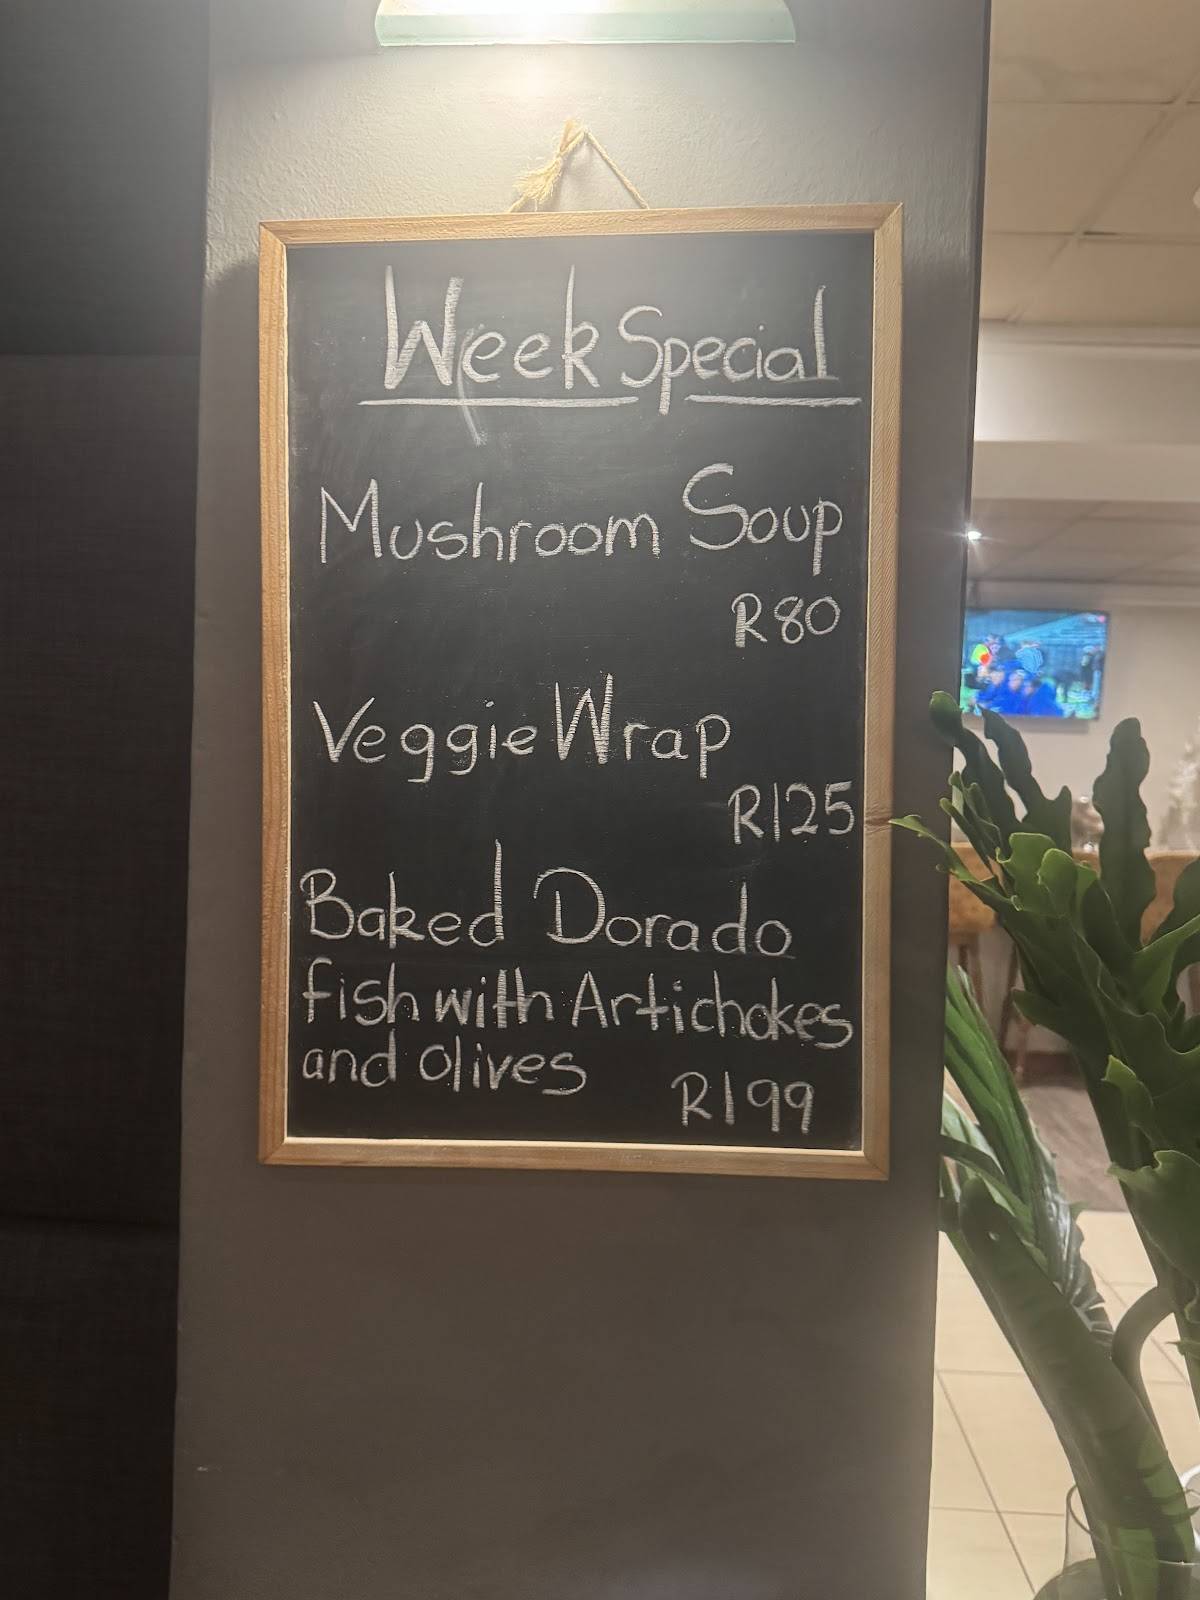 Week Special
Mushroom Soup
R80
Veggie Wrap
R125
Baked Dorado
fish with Artichokes
and olives
R199